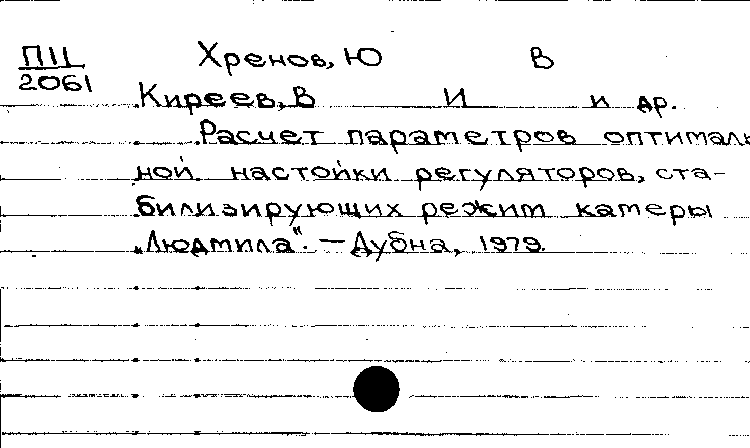 П11
2061
Хренов, Ю В
Киреев, В И и др.
Расчет параметров оптималь
ной настойки регуляторов, ста-
билизирующих режим камеры
„Людмила“. – Дубна, 1979.